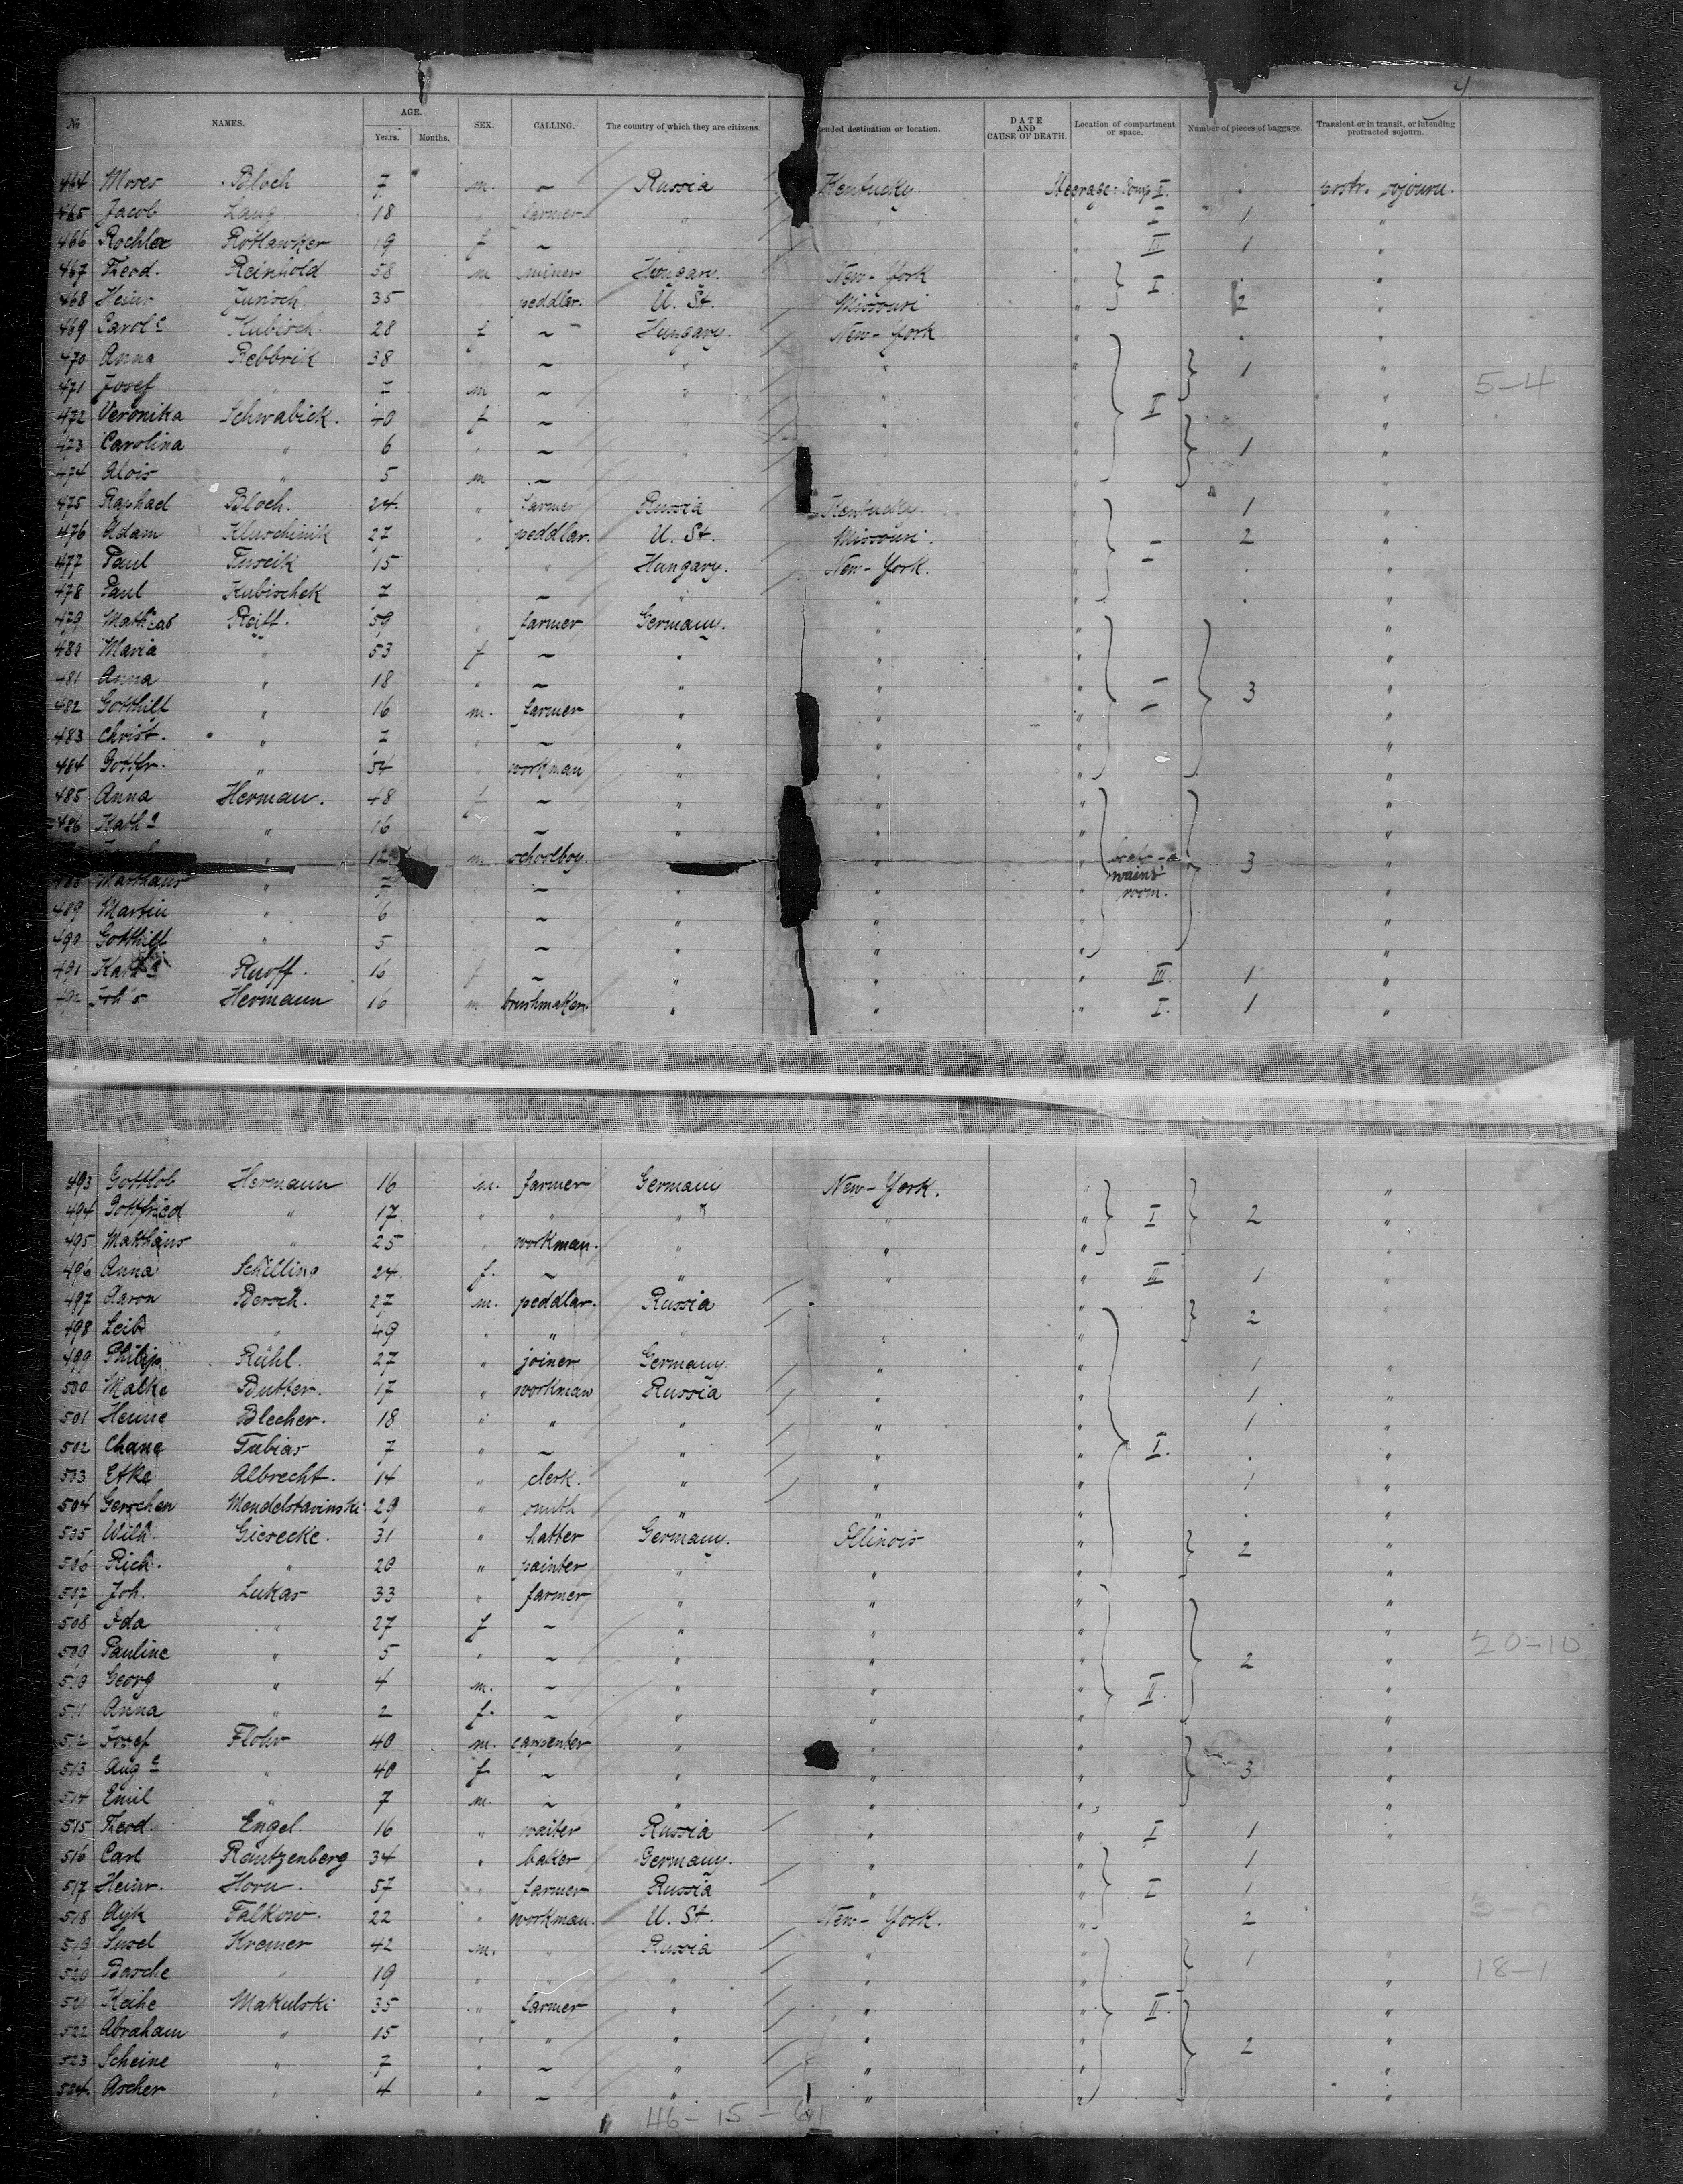 4
No NAMES. AGE. Years. Months. SEX. CALLING. The country of which they are citizens. ended destination or location. DATE AND CAUSE OF DEATH. Location of compartment or space. Number of pieces of baggage. Transient or in transit, or intending protracted sojourn.
464 Moses Bloch 7 m. ~ Russia Kentucky Steerage: Comp II. . protr. sojourn.
465 Jacob Lang. 18 " farmer " " " I 1 "
466 Rochlea Rotlawker 19 f ~ " " " III 1 "
467 Theod. Reinhold 58 m miner Hungary. New-York " I . "
468 Heinr Jurisch 35 " peddlar. U. St. Missouri " 2 "
469 Carole Kubisch. 28 f ~ Hungary. New-York " . "
470 Anna Rebbrik 38 " ~ " " " 1 "
471 Josef " 7 m ~ " " " "
472 Veronika Schwabick. 40 f ~ " " " II "
473 Carolina " 6 " ~ " " " 1 "
474 Alois " 5 m ~ "
475 Raphael Bloch. 24. " farmer Russia Kentucky " 1 "
476 Adam Kluschinik 27 " peddlar. U. St. Missouri. " 2 "
477 Paul Tuscik 15 " " Hungary. New-York. " I . "
478 Paul Kubischek 7 " ~ " " " . "
479 Mathias Reiff. 59 " farmer Germany. " " "
480 Maria " 53 f ~ " " " "
481 Anna " 18 " ~ " " " I 3 "
482 Gotthilf " 16 m. farmer " " " "
483 Christ. " 7 " ~ " " " "
484 Gottfr. " 34 " workman " " " "
485 Anna Herman. 48 f ~ " " " "
486 Katha " 16 ~ " " " "
" 12 m. schoolboy. " " 3 "
488 Matthaus " 7 ~ " " room. "
489 Martin " 6 ~ " " " "
490 Gotthilf " 5 ~ " " " "
491 Katha Ruoff. 16 f ~ " " III. 1 "
492 Joh's Hermann 16 m. brushmaker. " " " I. 1 "
493 Gottlob Hermann 16 m. farmer Germany New-York. " "
494 Gottfried " 17. " " " " " I 2 "
495 Matthäus " 25 " workman. " " " "
496 Anna Schilling 24. f. ~ " " " II 1 "
497 Aaron Bersch. 27 m. peddlar. Russia " " 2 "
498 Leib " 49 " " " " "
499 Philipp Rühl. 27 " joiner Germany. " " 1 "
500 Malke Butter. 17 " workman Russia " " 1 "
501 Henne Blecher. 18 " " " " " 1 "
502 Chane Tubias 7 " ~ " " " I. . "
503 Etke Albrecht. 14 " clerk. " " " 1 "
504 Gerschen Mendelstavinski 29 " smith " " " . "
505 Wilh. Giesecke. 31 " hatter Germany. Illinois " 2 "
506 Rich. " 20 " painter " " " "
507 Joh. Lukas 33 " farmer " " " "
508 Ida " 27 f ~ " " " "
509 Pauline " 5 " ~ " " " 2 "
510 Georg " 4 m. ~ " " " II. "
511 Anna " 2 f. ~ " " " "
512 Josef Flohr 40 m. carpenter " " " "
513 Auge " 40 f ~ " " " 3 "
514 Emil " 7 m. ~ " " " "
515 Theod. Engel 16 " waiter Russia " " I 1 "
516 Carl Rantzenberg 34 " baker Germany. " " 1
517 Heinr. Horn. 57 " farmer Russia " " I 1 "
518 Ayk Falkow. 22 " workman. U. St. New-York. " 2 "
519 Sussel Kremer 42 m. " Russia " " 1 "
520 Basche " 19 " " " " "
521 Keihe Makulski 35 " farmer " " " II. "
522 Abraham " 15 " " " " " 2 "
523 Scheine " 7 " ~ " " "
524. Ascher " 4 " ~ " " " "
5-4
20-10
18-1
46-15-61